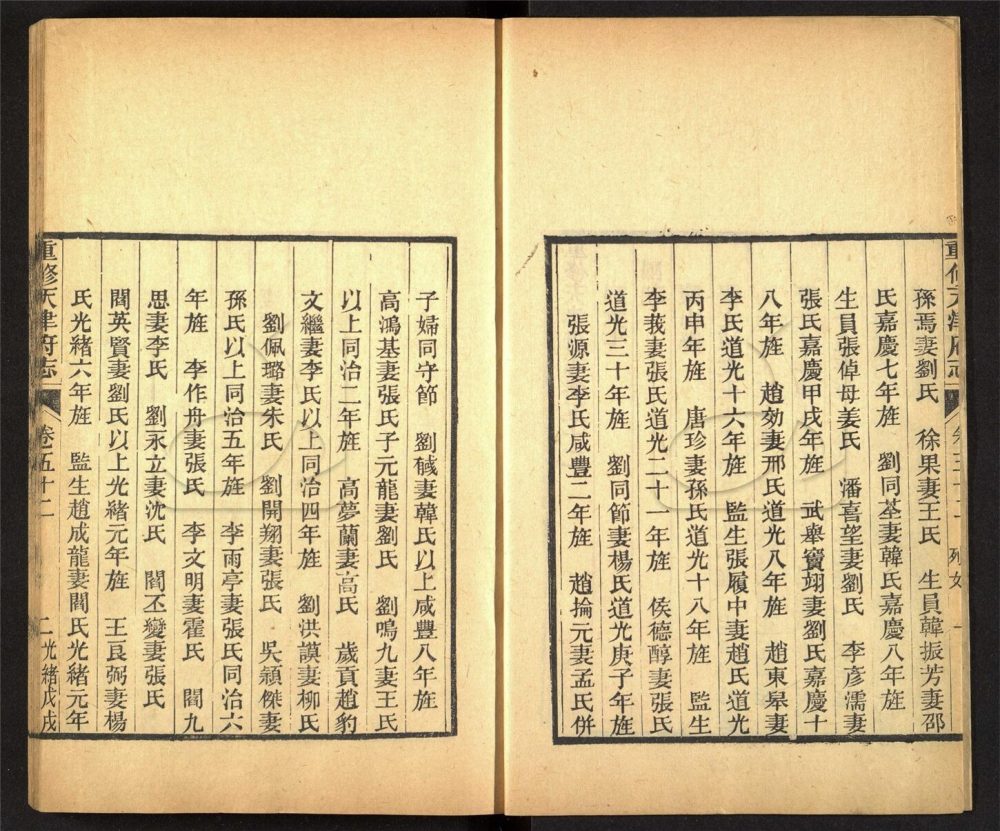 重修天津府志 卷五十二 列女 一
孫焉妻劉氏 徐果妻王氏 生員韓振芳妻邵
氏嘉慶七年旌 劉同荃妻韓氏嘉慶八年旌
生員張倬母姜氏 潘喜望妻劉氏 李彥濡妻
張氏嘉慶甲戌年旌 武舉竇翊妻劉氏嘉慶十
八年旌 趙効妻邢氏道光八年旌 趙東皋妻
李氏道光十六年旌 監生張履中妻趙氏道光
丙申年旌 唐珍妻孫氏道光十八年旌 監生
李莪妻張氏道光二十一年旌 侯德醇妻張氏
道光三十年旌 劉同節妻楊氏道光庚子年旌
張源妻李氏咸豐二年旌 趙掄元妻孟氏併
子婦同守節 劉棫妻韓氏以上咸豐八年旌
高鴻基妻張氏子元龍妻劉氏 劉鳴九妻王氏
以上同治二年旌 高夢蘭妻高氏 歲貢趙豹
文繼妻李氏以上同治四年旌 劉洪謨妻柳氏
劉佩璐妻朱氏 劉開翔妻張氏 吳穎傑妻
孫氏以上同治五年旌 李雨亭妻張氏同治六
年旌 李作舟妻張氏 李文明妻霍氏 閻九
思妻李氏 劉永立妻沈氏 閻丕變妻張氏
閻英賢妻劉氏以上光緒元年旌 王良弼妻楊
氏光緒六年旌 監生趙成龍妻閻氏光緒元年
重修天津府志 卷五十二 二光緒戊戌